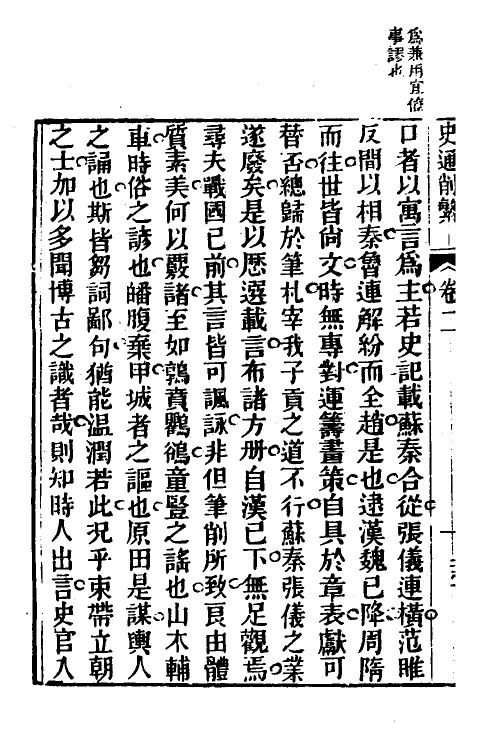 為兼用宜倂
事謬也
史通削繁
卷二
口者以寓言爲主若史記載蘇秦合從張儀連橫范睢
反間以相秦魯連解紛而全趙是也逮漢魏已降周隋
而往世皆尙文時無專對運籌畫策自具於章表獻可
替否總歸於筆札宰我子貢之道不行蘇秦張儀之業
遂廢矣是以歷選載言布諸方册自漢已下無足觀焉
尋夫戰國已前其言皆可諷詠非但筆削所致良由體
質素美何以覈諸至如鶉賁鸜鵒童豎之謠也山木輔
車時俗之諺也皤腹棄甲城者之謳也原田是謀輿人
之誦也斯皆芻詞鄙句猶能温潤若此况乎束帶立朝
之士加以多聞博古之識者哉則知時人出言史官入